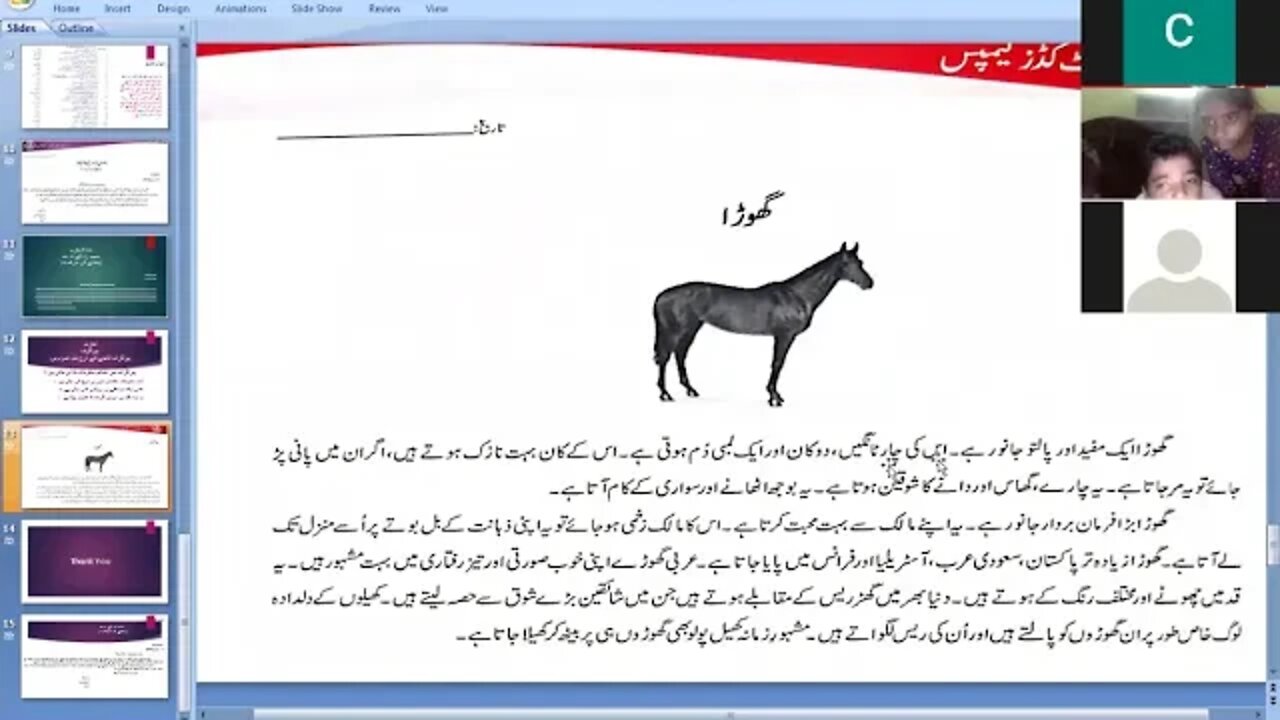 Home Insert Design Animations Slide Show Review View
Slides Outline
C
کڈز کیمپس
تاریخ:
گھوڑا
گھوڑا ایک مفید اور پالتو جانور ہے۔ اس کی چار ٹانگیں، دو کان اور ایک لمبی دُم ہوتی ہے۔ اس کے کان بہت نازک ہوتے ہیں، اگر ان میں پانی پڑ
جائے تو یہ مر جاتا ہے۔ یہ چارے، گھاس اور دانے کا شوقین ہوتا ہے۔ یہ بوجھ اٹھانے اور سواری کے کام آتا ہے۔
گھوڑا بڑا فرمان بردار جانور ہے۔ یہ اپنے مالک سے بہت محبت کرتا ہے۔ اس کا مالک زخمی ہو جائے تو یہ اپنی ذہانت کے بل بوتے پر اُسے منزل تک
لے آتا ہے۔ گھوڑا زیادہ تر پاکستان، سعودی عرب، آسٹریلیا اور فرانس میں پایا جاتا ہے۔ عربی گھوڑے اپنی خوب صورتی اور تیز رفتاری میں بہت مشہور ہیں۔ یہ
قد میں چھوٹے اور مختلف رنگ کے ہوتے ہیں۔ دنیا بھر میں گھڑ ریس کے مقابلے ہوتے ہیں جن میں شائقین بڑے شوق سے حصہ لیتے ہیں۔ کھیلوں کے دلدادہ
لوگ خاص طور پر ان گھوڑوں کو پالتے ہیں اور اُن کی ریس لگواتے ہیں۔ مشہور زمانہ کھیل پولو بھی گھوڑوں ہی پر بیٹھ کر کھیلا جاتا ہے۔
10
11
12
14
Thank You
15